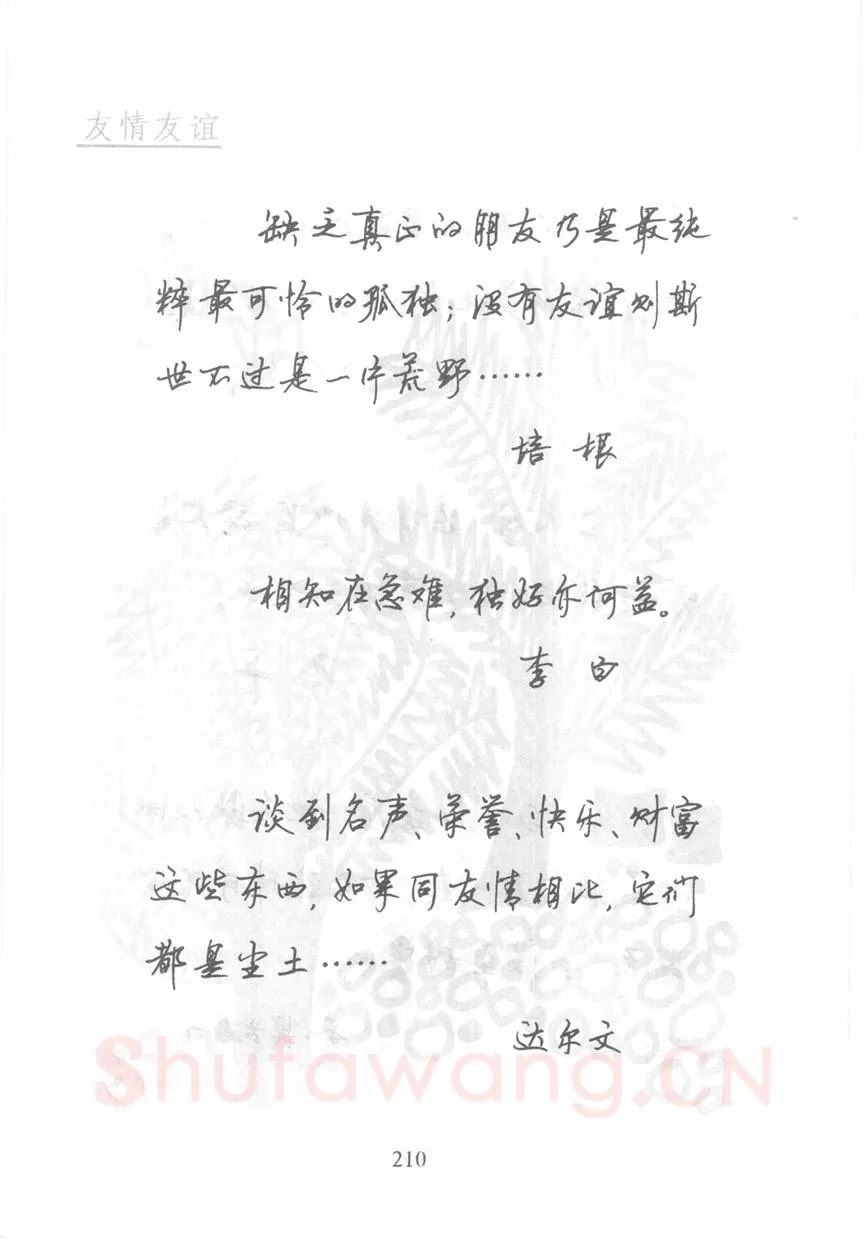 友情友谊
缺乏真正的朋友乃是最纯
粹最可怜的孤独；没有友谊则斯
世不过是一片荒野……
培 根
相知在急难，独好亦何益。
李 白
谈到名声、荣誉、快乐、财富
这些东西，如果同友情相比，它们
都是尘土……
达尔文
Shufawang.CN
210